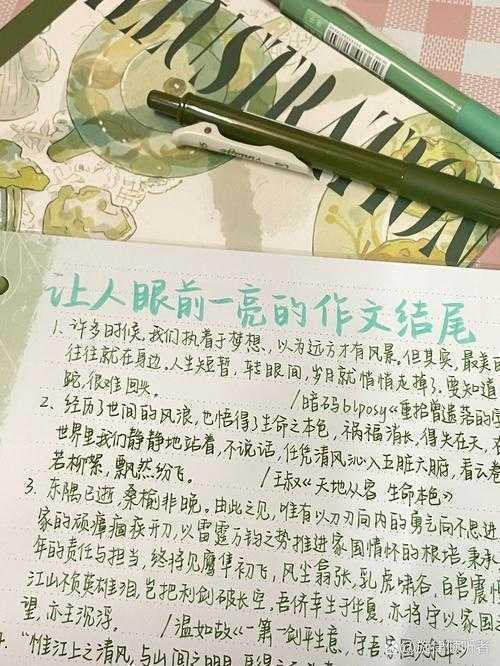 ILLUSTRATION
让人眼前一亮的作文结尾
1. 许多时候,我们执着于梦想,以为远方才有风景。但其实,最美
往往就在身边。人生短暂,转眼间,岁月就悄悄走掉了,要知道
跎,很难回头。 /暗码blposy《重拾曾遗落的
2. 经历了世间的风浪,也悟得了生命之本色,祸福消长,得失在天,
世界里我们静静地站着,不说话,任凭清风沁入五脏六腑,看云卷
若柳絮,飘然纷飞。 /王叔《天地从容 生命本色》
3. 东隅已逝,桑榆非晚。由此之见,唯有以刀刃向内的勇
家的顽瘴痼疾开刀,以雷霆万钧之势推进家国情怀的根培,秉承
年的责任与担当,终将见鹰隼初飞,风尘翕张,乳虎啸谷,百兽震
江山不负英雄泪,且把利剑破长空。吾侪幸生于华夏,亦将守以家国
望,亦主沉浮。 /温如故《一第一剑平生意,
“惟江上之清风,与山间之明月,